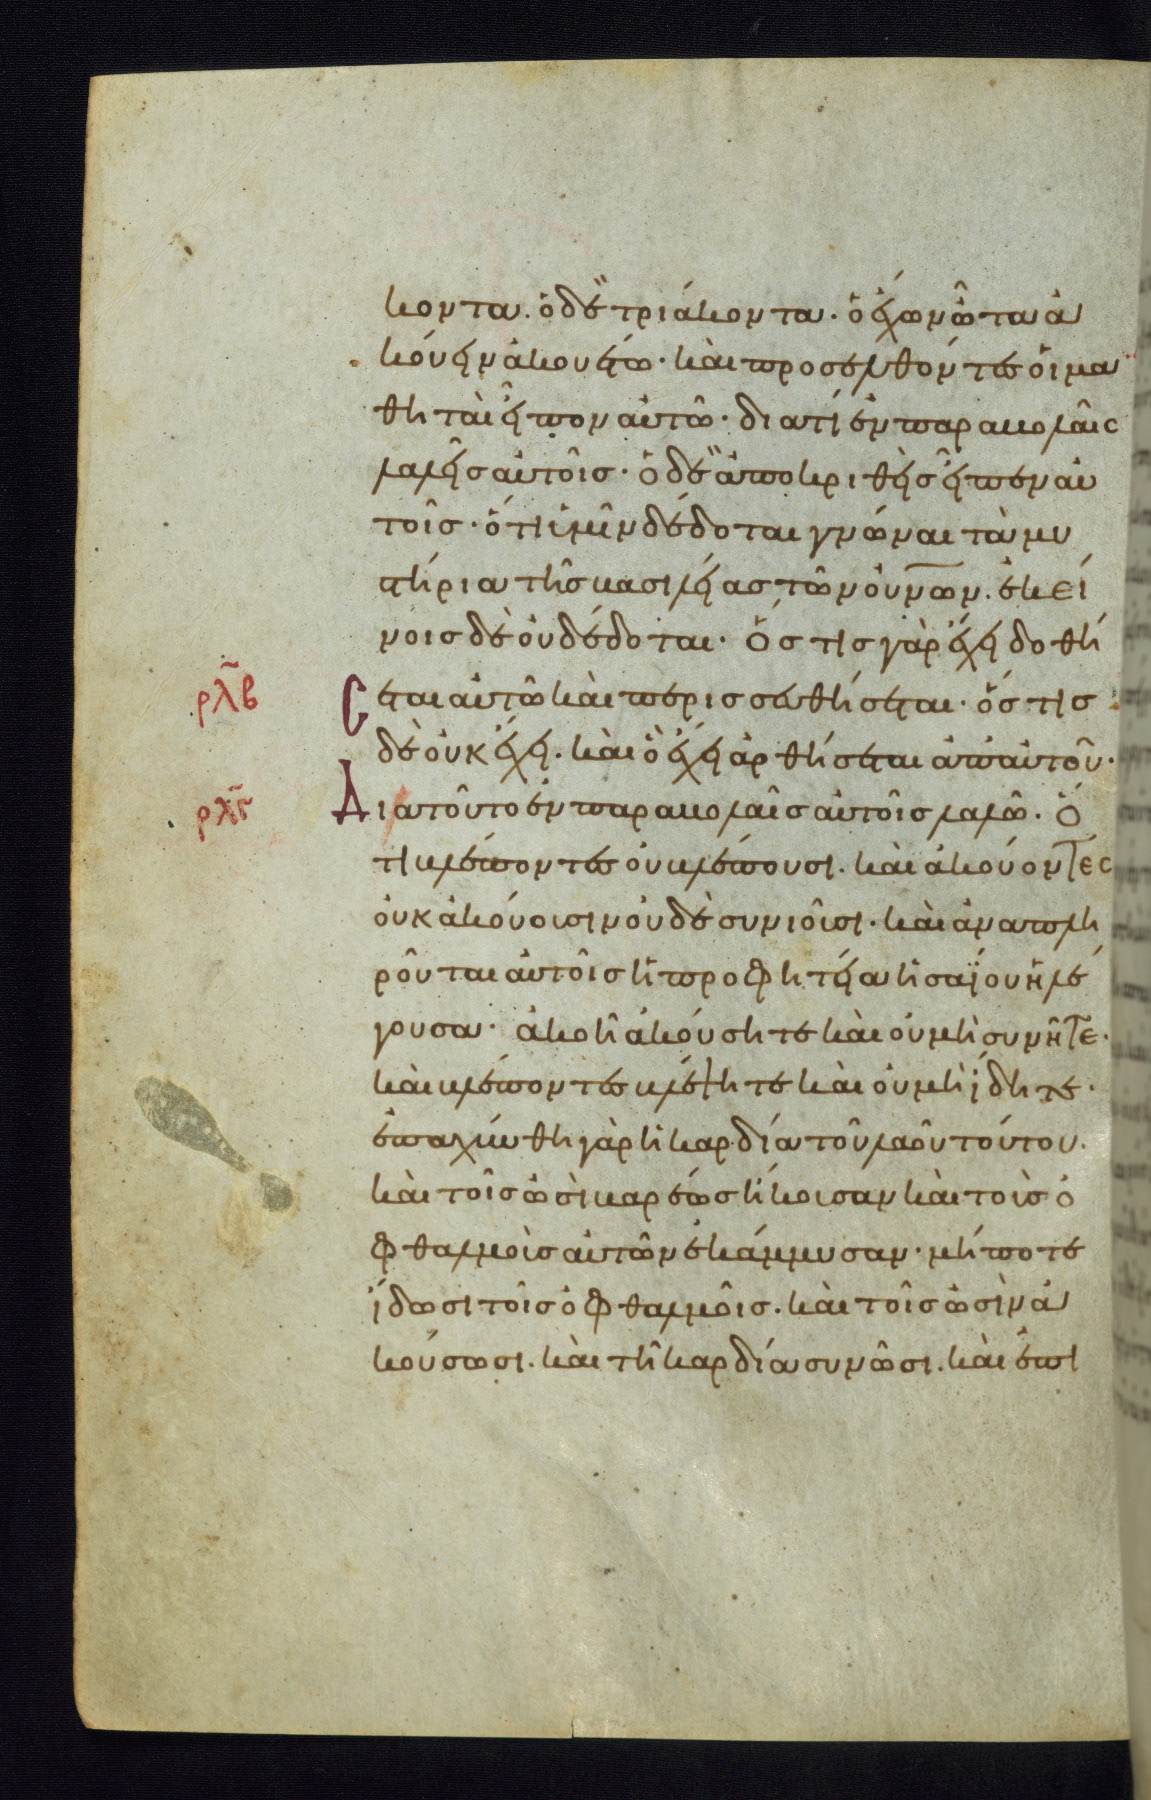 κοντα. ὁ δὲ τριάκοντα. ὁ ἔχων ὦτα ἀ
κούειν ἀκουέτω. καὶ προσελθόντες οἱ μα
θηταὶ εἶπον αὐτῶ. διατί ἐν παραβολαῖς
λαλεῖς αὐτοῖς. ὁ δὲ ἀποκριθεὶς εἶπεν αὐ
τοῖς. ὅτι ὑμῖν δέδοται γνῶναι τὰ μυ
στήρια τῆς βασιλείας τῶν οὐνῶν. ἐκεί
νοις δὲ οὐ δέδοται. Ὅστις γὰρ ἔχει δοθή
ρλβ σεται αὐτῶ καὶ περισσευθήσεται. ὅστις
δὲ οὐκ ἔχει. καὶ ὃ ἔχει ἀρθήσεται ἀπ αὐτοῦ.
ρλγ Διατοῦτο ἐν παραβολαῖς αὐτοῖς λαλῶ. Ὅ
τι βλέποντες οὐ βλέπουσι. καὶ ἀκούοντες
οὐκ ἀκούουσιν οὐδὲ συνιοῦσι. καὶ ἀναπλη
ροῦται αὐτοῖς ἡ προφητεία ἡσαΐου ἡ λέ
γουσα. ἀκοῆ ἀκούσητε καὶ οὐ μὴ συνῆτε.
καὶ βλέποντες βλέψητε καὶ οὐ μὴ ἴδητε.
ἐπαχύνθη γὰρ ἡ καρδία τοῦ λαοῦ τούτου.
καὶ τοῖς ὠσὶ βαρέως ἤκουσαν καὶ τοὺς ὀ
φθαλμοὺς αὐτῶν ἐκάμμυσαν. μήποτε
ἴδωσι τοῖς ὀφθαλμοῖς. καὶ τοῖς ὠσὶν ἀ
κούσωσι. καὶ τῆ καρδία συνῶσι. καὶ ἐπι